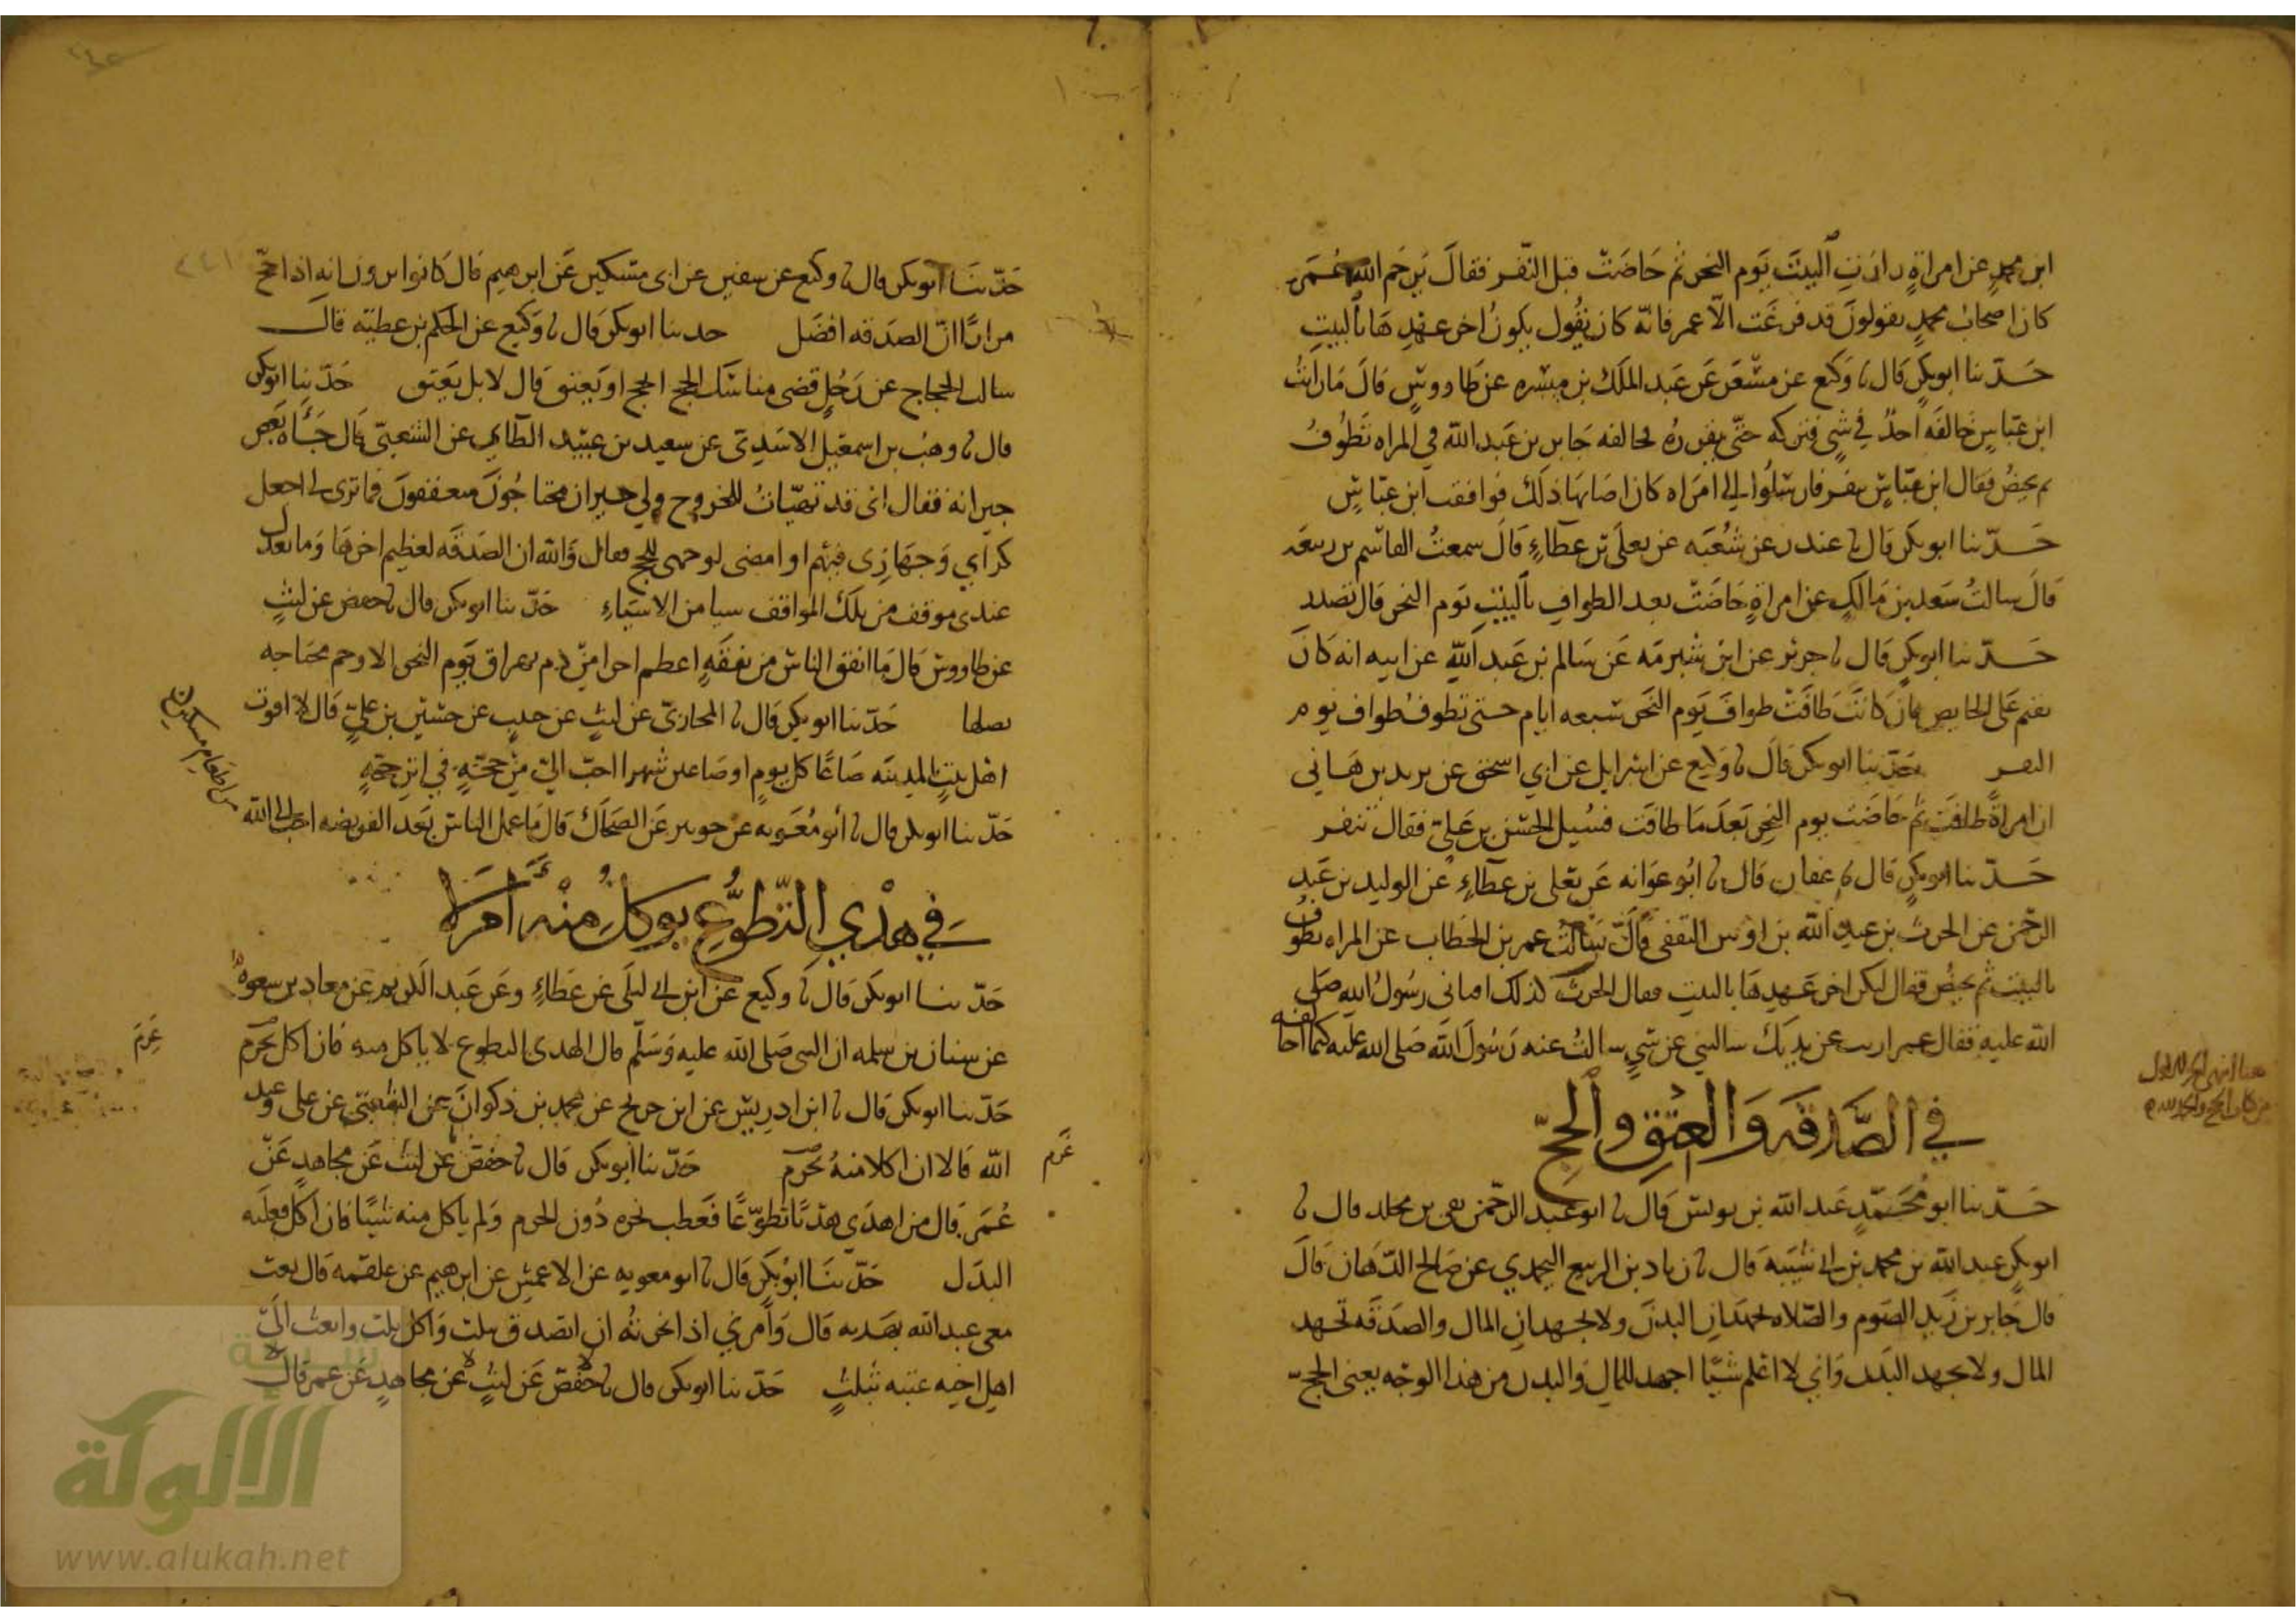 ابن محمد عن امراة زارت البيت يوم النحر ثم حاضت قبل النفر فقال يرحم الله عمر
كان اصحاب محمد يقولون قد فرغت الا عمر فانه كان يقول يكون اخر عهدها بالبيت
حدثنا ابو بكر قال نا وكيع عن مسعر عن عبد الملك بن ميسره عن طاووس قال ما رايت
ابن عباس خالفه احد في شي فتركه حتى يقرره فخالفه جابر بن عبد الله في المراه تطوف
ثم تحيض فقال ابن عباس تنفر فارسلوا الى امراه كان اصابها ذلك فوافقت ابن عباس
حدثنا ابو بكر قال نا غندر عن شعبه عن يعلى بن عطاء قال سمعت القاسم بن ربيعه
قال سالت سعد بن مالك عن امراة حاضت بعد الطواف بالبيت يوم النحر قال تصدر
حدثنا ابو بكر قال نا جرير عن ابن شبرمه عن سالم بن عبد الله عن ابيه انه كان
يقيم على الحايض وان كانت طافت طواف يوم النحر سبعه ايام حتى تطوف طواف يوم
النفر حدثنا ابو بكر قال نا وكيع عن اسرايل عن ابي اسحق عن يزيد بن هاني
ان امراة طافت ثم حاضت يوم النحر بعد ما طافت فسيل الحسن بن علي فقال تنفر
حدثنا ابو بكر قال نا عفان قال نا ابو عوانه عن يعلى بن عطاء عن الوليد بن عبد
الرحمن عن الحرث بن عبد الله بن اوس الثقفي قال سالت عمر بن الخطاب عن المراه تطوف
بالبيت ثم تحيض فقال ليكن اخر عهدها بالبيت فقال الحرث كذلك افتاني رسول الله صلى
الله عليه فقال عمر اربت عن يديك سالتني عن شي سالت عنه رسول الله صلى الله عليه كيما اخالفه
هنا انتهى الجزء الاول
من كتاب الحج والحمد لله
في الصدقه والعتق والحج
حدثنا ابو محمد عبد الله بن يونس قال نا ابو عبد الرحمن بقي بن مخلد قال نا
ابو بكر عبد الله بن محمد بن ابي شيبه قال نا زياد بن الربيع اليحمدي عن صالح الدهان قال
قال جابر بن زيد الصوم والصلاه يجهدان البدن ولا يجهدان المال والصدقه تجهد
المال ولا تجهد البدن واني لا اعلم شيا اجهد للمال والبدن من هذا الوجه يعني الحج
حدثنا ابو بكر قال نا وكيع عن سفين عن ابي مسكين عن ابرهيم قال كانوا يرون انه اذا حج
مرارا ان الصدقه افضل حدثنا ابو بكر قال نا وكيع عن الحكم بن عطيه قال
سالت الحجاج عن رجل قضى مناسك الحج ايحج او يعتق قال لا بل يعتق حدثنا ابو بكر
قال نا وهب بن اسمعيل الاسدي عن سعيد بن عبيد الطاي عن الشعبي قال جاه بعض
جيرانه فقال اني قد تهيات للخروج ولي جيران محتاجون متعففون فما ترى لي اجعل
كراي وجهازي فيهم او امضي لوجهي للحج فقال والله ان الصدقه لعظيم اجرها وما تعدل
عندي موقف من تلك المواقف شيا من الاشياء حدثنا ابو بكر قال نا حفص عن ليث
عن طاووس قال ما انفق الناس من نفقه اعظم اجرا من دم يهراق يوم النحر الا رحم محتاجه
يصلها حدثنا ابو بكر قال نا المحاربي عن ليث عن حبيب عن حسين بن علي قال لان اقوت
اهل بيت بالمدينه صاعا كل يوم او صاعين شهرا احب الي من حجة في اثر حجة
حدثنا ابو بكر قال نا ابو معويه عن جويبر عن الضحاك قال ما عمل الناس بعد الفريضه احب الى الله
من اطعام مسكين
في هدي التطوع يوكل منه ام لا
حدثنا ابو بكر قال نا وكيع عن ابن ابي ليلى عن عطاء وعن عبد الكريم عن معاذ بن سعوه
عن سنان بن سلمه ان النبي صلى الله عليه وسلم قال الهدي التطوع لا ياكل منه فان اكل غرم
غرم
حدثنا ابو بكر قال نا ابن ادريس عن ابن جريج عن محمد بن ذكوان عن الشعبي عن علي وعبد
الله قالا ان اكلا منه غرم حدثنا ابو بكر قال نا حفص عن ليث عن مجاهد عن
غرم
عمر قال من اهدى هديا تطوعا فعطب نحره دون الحرم ولم ياكل منه شيا فان اكل فعليه
البدل حدثنا ابو بكر قال نا ابو معويه عن الاعمش عن ابرهيم عن علقمه قال بعث
معي عبد الله بهديه قال وامرني اذا نحرته ان اتصدق بثلث واكل بثلث وابعث الى
اهل اخيه عتبه بثلث حدثنا ابو بكر قال نا حفص عن ليث عن مجاهد عن عمر قال
شبكة
الألوكة
www.alukah.net